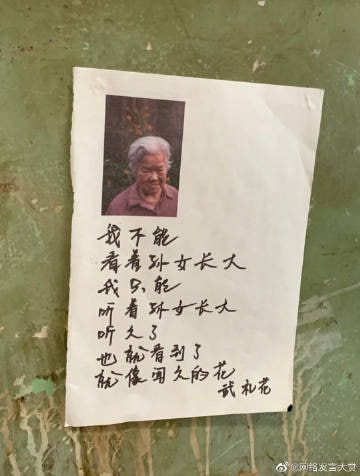 我不能
看着孙女长大
我只能
听着孙女长大
听久了
也就看到了
就像闻久的花
武礼花
@网络发言大赏